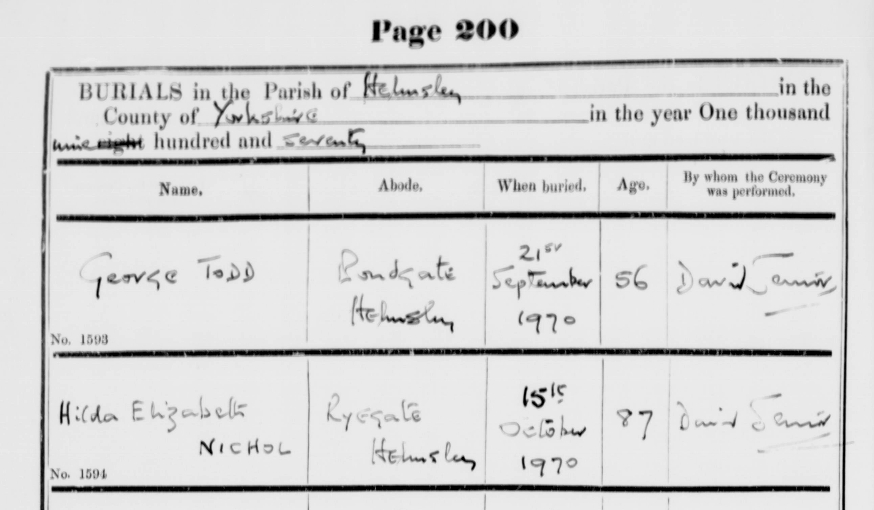 Page 200
BURIALS in the Parish of Helmsley in the
County of Yorkshire in the year One thousand
nine eight hundred and seventy
Name. Abode. When buried. Age. By whom the Ceremony
was performed.
George TODD Bondgate Helmsley 21st September 1970 56 David Senior
No. 1593
Hilda Elizabeth NICHOL Ryegate Helmsley 15th October 1970 87 David Senior
No. 1594